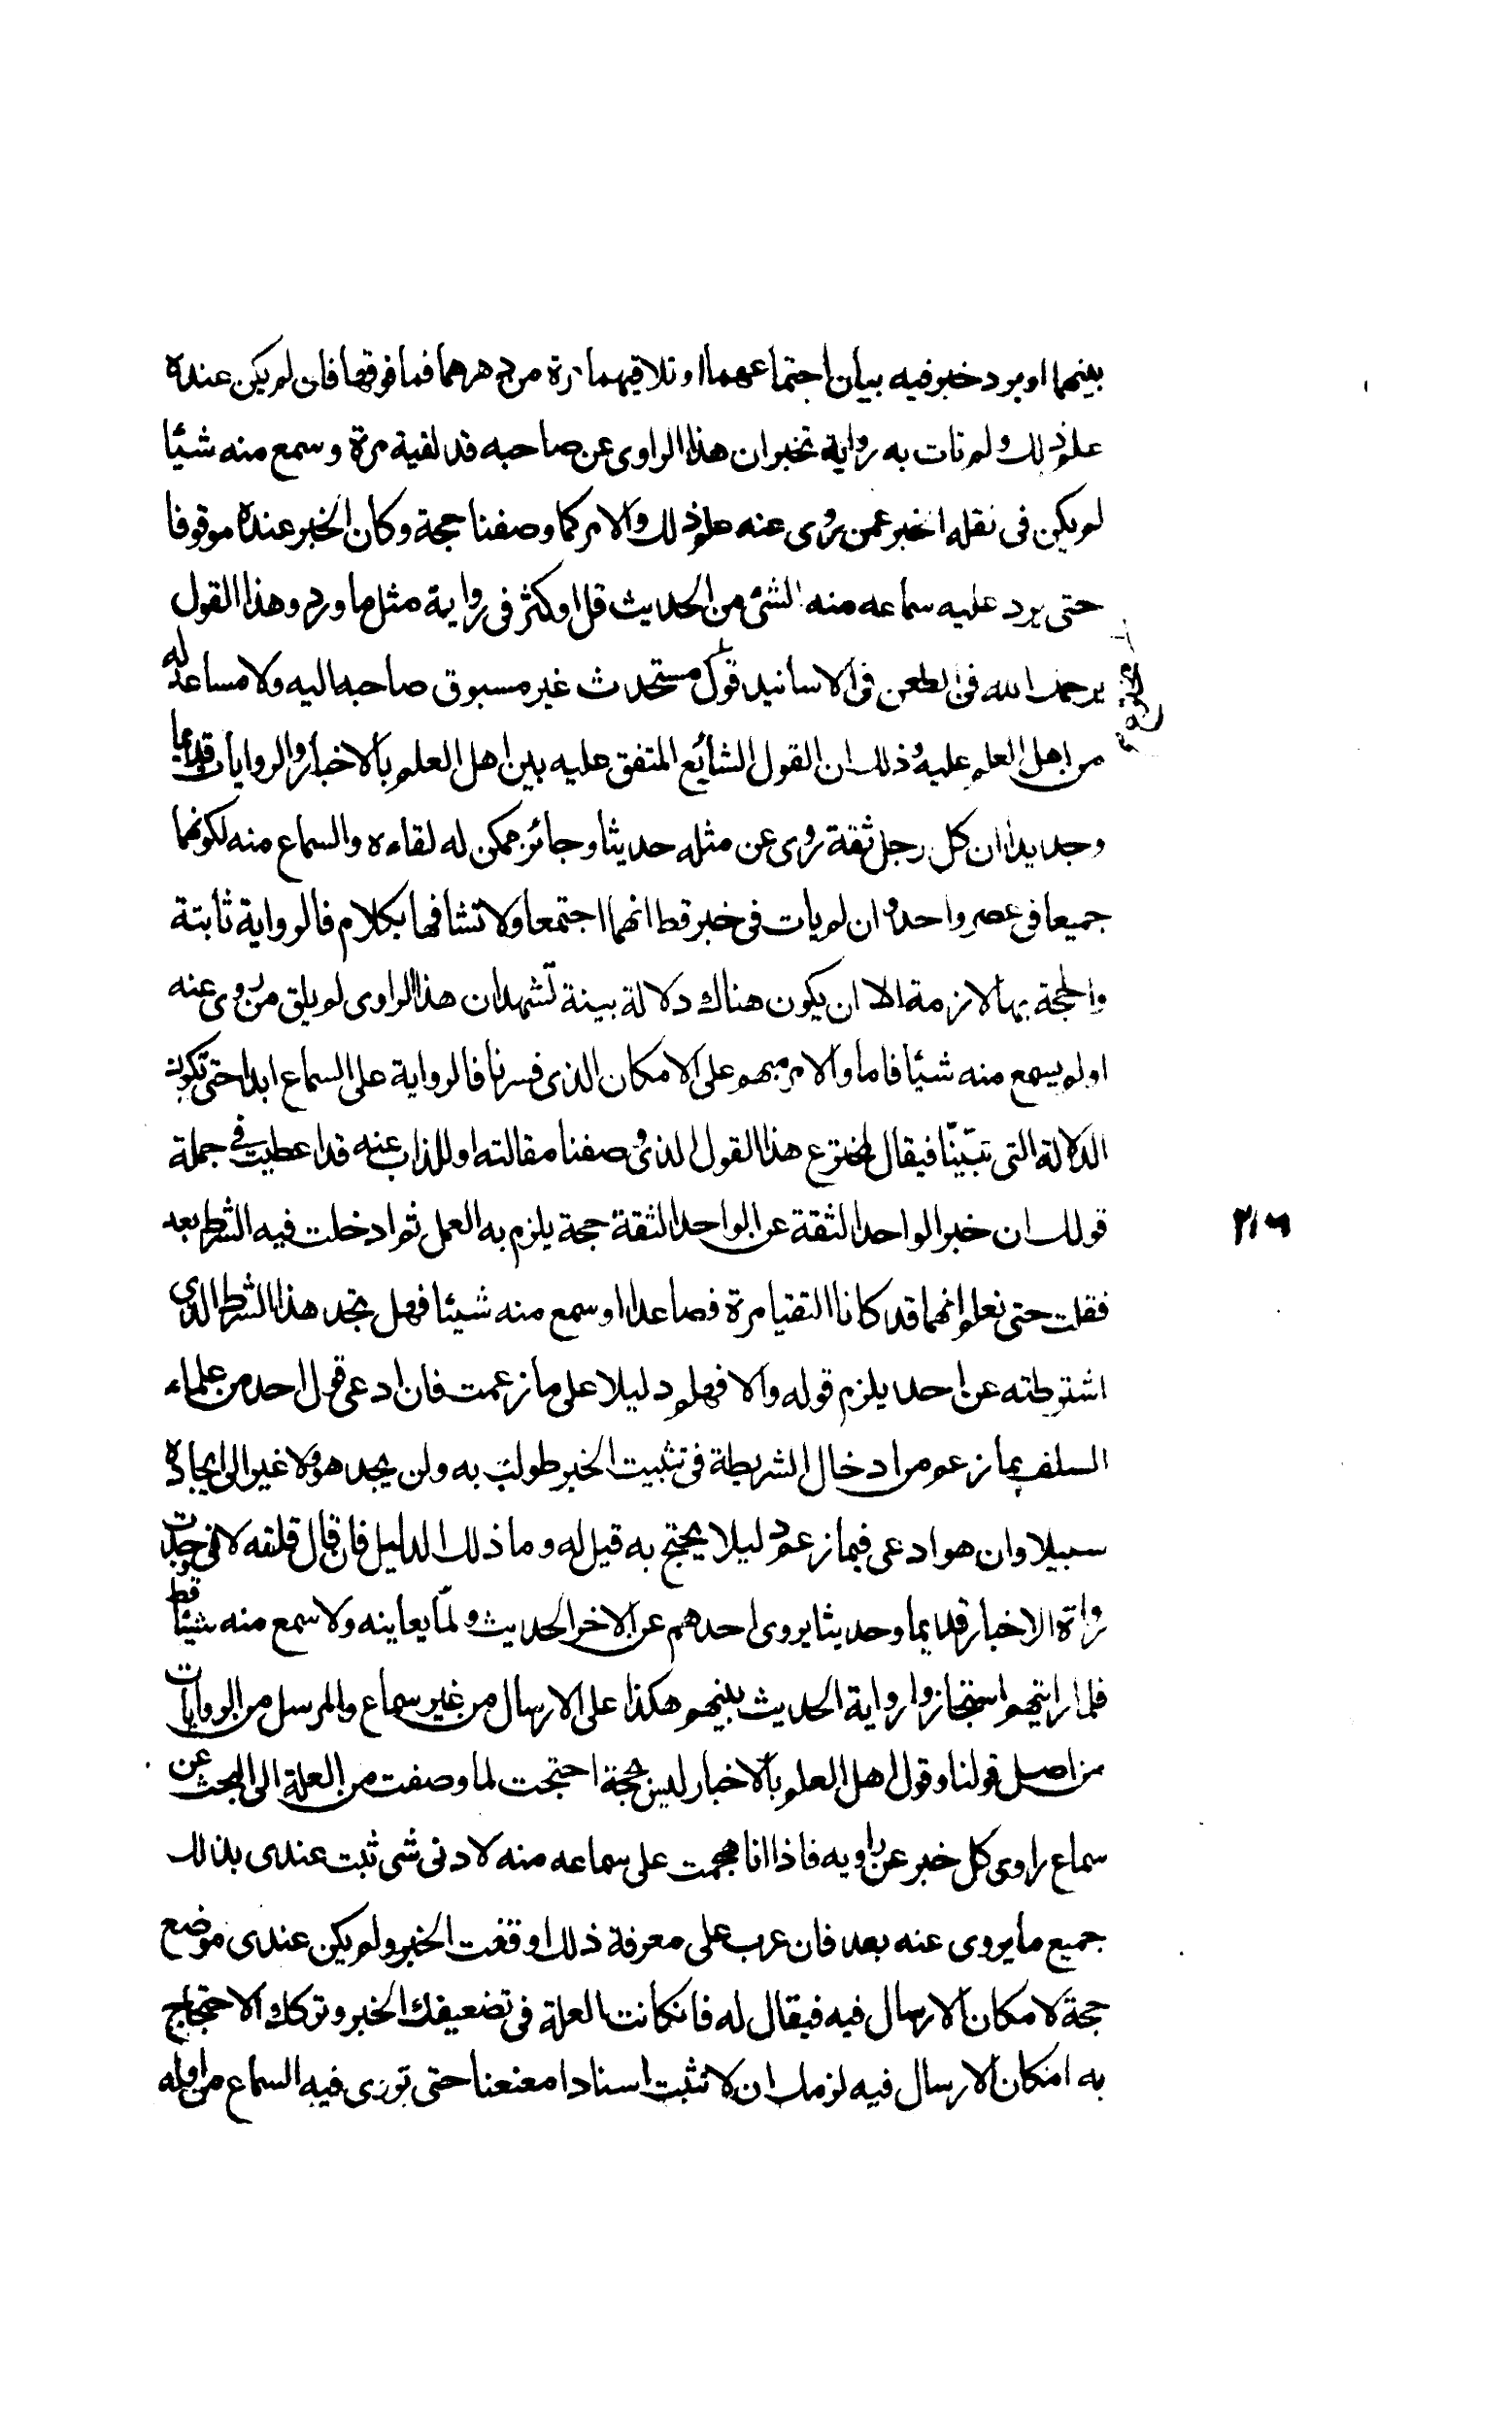 بينهما او يرد خبر فيه بيان اجتماعهما او تلاقيهما مرة من دهرهما فما فوقها فان لم يكن عنده
علم ذلك ولم تات به رواية تخبر ان هذا الراوى عن صاحبه قد لقيه مرة وسمع منه شيئا
لم يكن فى نقله الخبر عمن روى عنه علم ذلك والامر كما وصفنا حجة وكان الخبر عنده موقوفا
حتى يرد عليه سماعه منه الشئ من الحديث قل او كثر فى رواية مثل ما ورد وهذا القول
يرحمك الله فى الطعن فى الاسانيد قول مستحدث غير مسبوق صاحبه اليه ولا مساعد له
من اهل العلم عليه وذلك ان القول الشائع المتفق عليه بين اهل العلم بالاخبار والروايات قديما
وجديدا ان كل رجل ثقة روى عن مثله حديثا وجائز ممكن له لقاءه والسماع منه لكونهما
جميعا فى عصر واحد وان لم يات فى خبر قط انهما اجتمعا ولا تشافها بكلام فالرواية ثابتة
والحجة بها لازمة الا ان يكون هناك دلالة بينة تشهد ان هذا الراوى لم يلق من روى عنه
او لم يسمع منه شيئا فاما والامر مبهم على الامكان الذى فسرنا فالرواية على السماع ابدا حتى تكون
الدلالة التى تبينا فيقال لمخترع هذا القول الذى وصفنا مقالته او للذاب عنه قد اعطيت فى جملة
قولك ان خبر الواحد الثقة عن الواحد الثقة حجة يلزم به العمل ثم ادخلت فيه الشرط بعد
فقلت حتى نعلم انهما قد كانا التقيا مرة فصاعدا او سمع منه شيئا فهل تجد هذا الشرط الذى
اشترطته عن احد يلزم قوله والا فهلم دليلا على ما زعمت فان ادعى قول احد من علماء
السلف بما زعم من ادخال الشريطة فى تثبيت الخبر طولب به ولن يجد هو ولا غير الى ايجاده
سبيلا وان هو ادعى فيما زعم دليلا يحتج به قيل له وما ذلك الدليل فان قال قلته لانى وجدت
رواة الاخبار قديما وحديثا يروى احدهم عن الاخر الحديث ولمّا يعاينه ولا سمع منه شيئا قط
فلما رايتهم استجازوا رواية الحديث بينهم هكذا على الارسال من غير سماع والمرسل من الروايات
من اصل قولنا وقول اهل العلم بالاخبار ليس بحجة احتجت لما وصفت من العلة الى البحث عن
سماع راوى كل خبر عن راويه فاذا انا هجمت على سماعه منه لادنى شى ثبت عندى بذلك
جميع ما يروى عنه بعد فان عرب على معرفة ذلك اوقفت الخبر ولم يكن عندى موضع
حجة لامكان الارسال فيه فيقال له فان كانت العلة فى تضعيفك الخبر وتركك الاحتجاج
به امكان الارسال فيه لزمك ان لا تثبت اسنادا معنعنا حتى ترى فيه السماع من اوله